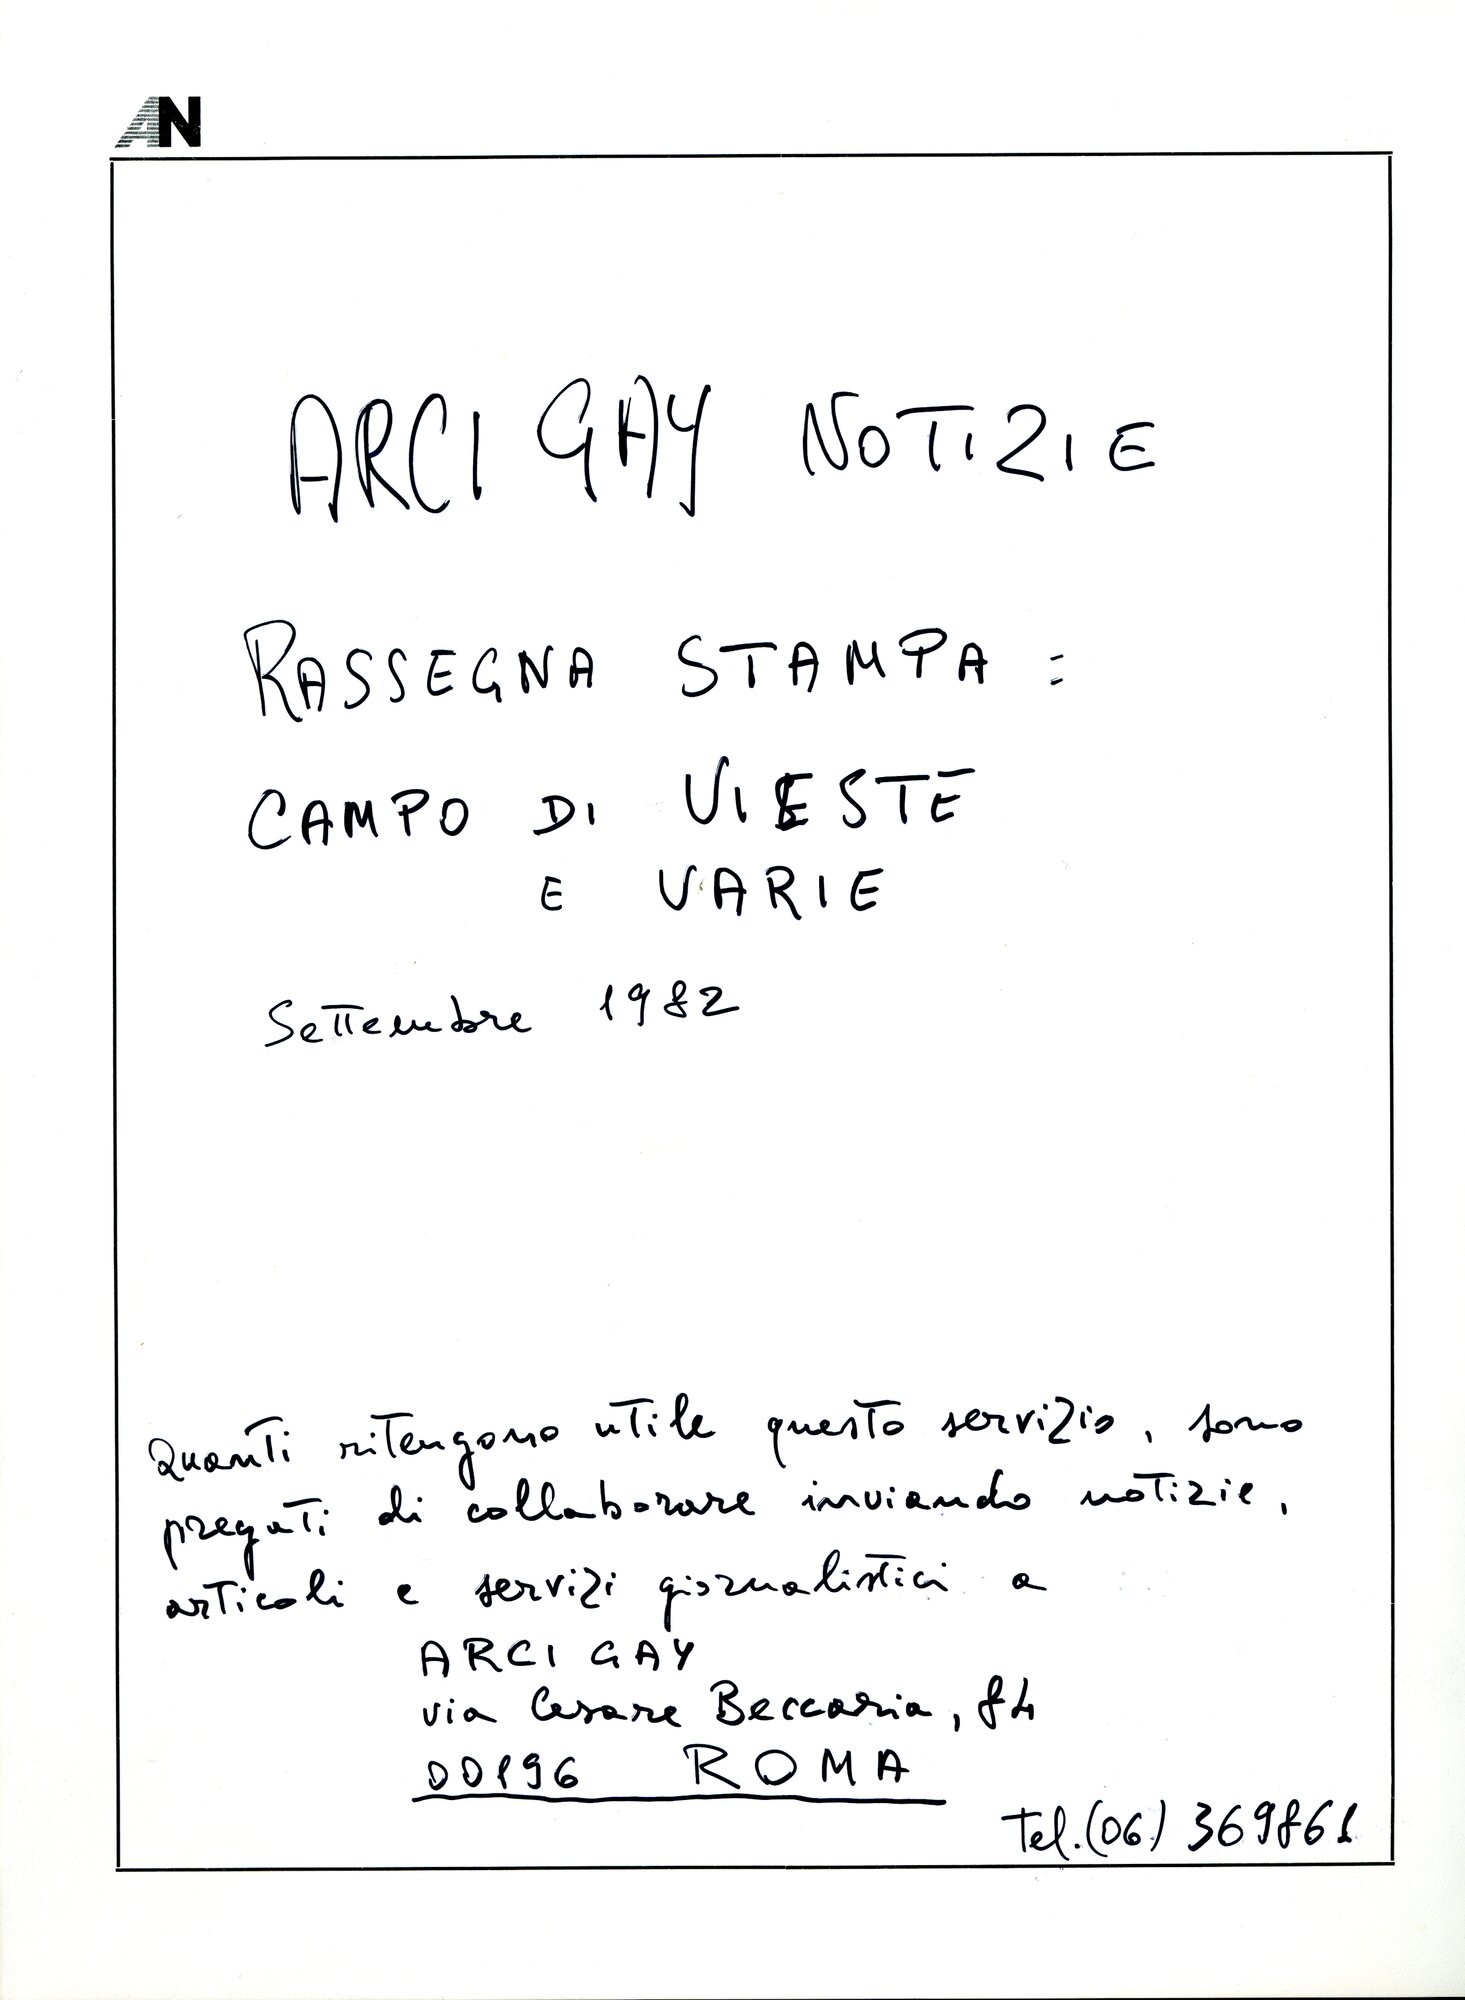 AN
ARCI GAY NOTIZIE
RASSEGNA STAMPA:
CAMPO DI VIESTE
E VARIE
Settembre 1982
Quanti ritengono utile questo servizio, sono
pregati di collaborare inviando notizie,
articoli e servizi giornalistici a
ARCI GAY
via Cesare Beccaria, 84
00196 ROMA
Tel. (06) 369861